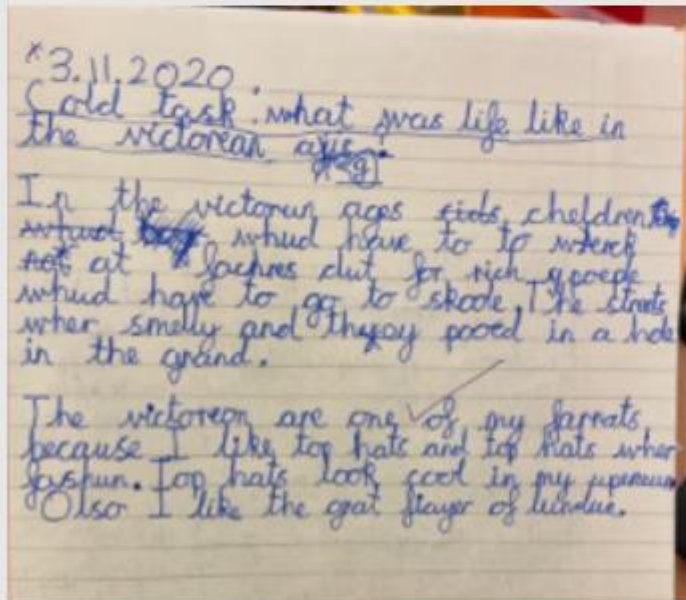 *3.11.2020.
Cold task: what was life like in
the victorean
g
In the victorun ages cheldren
whud have to to werck
at fachres dut for rich
whud have to go to skode. The streets
wher smelly and they pooed in a hole
in the grand.
The victorean are one of my farrats
because I like top hats and top hats wher
fashun. Top hats look cool in my
Olso I like the grat fiayer of lundun.